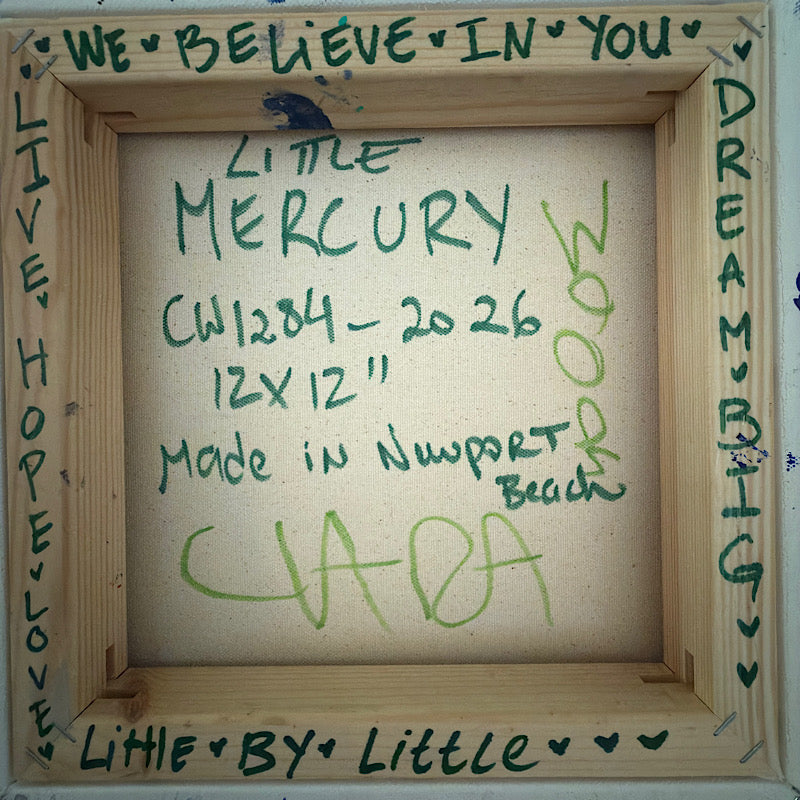 WE ♥ BELiEVE ♥ IN ♥ YOU ♥
DREAM ♥ BIG ♥ ♥
LIVE ♥ HOPE ♥ LOVE ♥
LittlE ♥ BY ♥ Little ♥ ♥ ♥
LiTTLE
MERCURY
CW1284 - 2026
12X12"
Made iN NewpORT
Beach